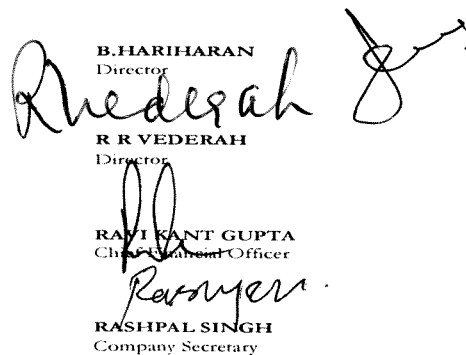 B.HARIHARAN
Director
R R VEDERAH
Director
RAVI KANT GUPTA
Chief Financial Officer
RASHPAL SINGH
Company Secretary